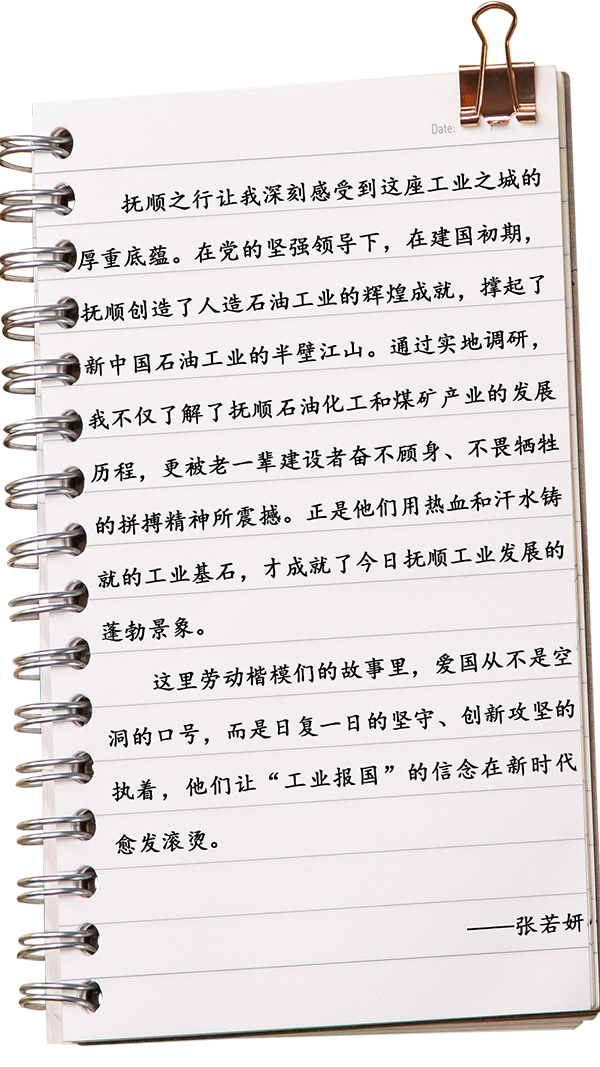 Date:
抚顺之行让我深刻感受到这座工业之城的
厚重底蕴。在党的坚强领导下，在建国初期，
抚顺创造了人造石油工业的辉煌成就，撑起了
新中国石油工业的半壁江山。通过实地调研，
我不仅了解了抚顺石油化工和煤矿产业的发展
历程，更被老一辈建设者奋不顾身、不畏牺牲
的拼搏精神所震撼。正是他们用热血和汗水铸
就的工业基石，才成就了今日抚顺工业发展的
蓬勃景象。
这里劳动楷模们的故事里，爱国从不是空
洞的口号，而是日复一日的坚守、创新攻坚的
执着，他们让“工业报国”的信念在新时代
愈发滚烫。
——张若妍